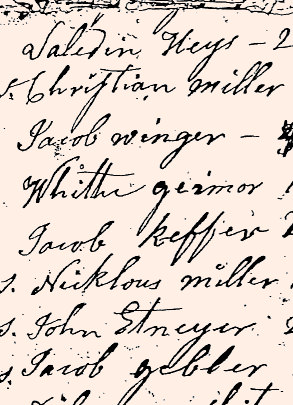 Daledin Heys - 2
s. Christian miller
Jacob winger -
geimor
Jacob keffer
s. Nicklous miller
s. John Etneyer
s. Jacob gebler